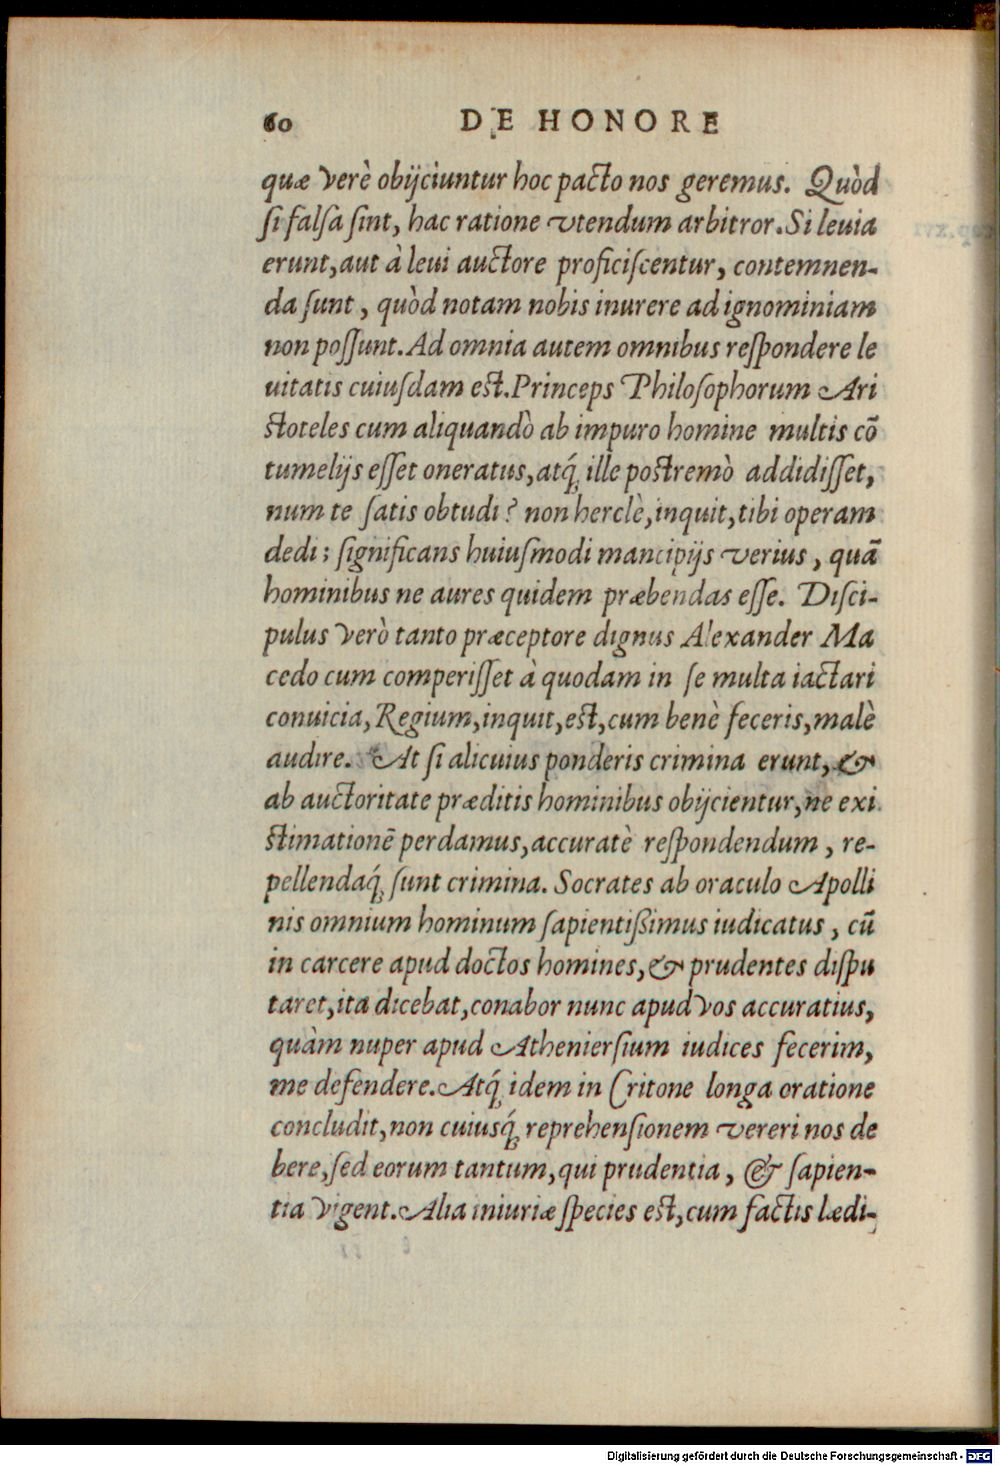 60 DE HONORE
quæ verè obijciuntur hoc pacto nos geremus. Quòd
ſi falſa ſint, hac ratione vtendum arbitror. Si leuia
erunt, aut à leui auctore proficiſcentur, contemnen-
da ſunt, quòd notam nobis inurere ad ignominiam
non poſſunt. Ad omnia autem omnibus reſpondere le
uitatis cuiuſdam eſt. Princeps Philoſophorum Ari
ſtoteles cum aliquandò ab impuro homine multis cõ
tumelijs eſſet oneratus, atq́; ille poſtremò addidiſſet,
num te ſatis obtudi? non herclè, inquit, tibi operam
dedi; ſignificans huiuſmodi mancipijs verius, quã
hominibus ne aures quidem præbendas eſſe. Diſci-
pulus verò tanto præceptore dignus Alexander Ma
cedo cum comperiſſet à quodam in ſe multa iactari
conuicia, Regium, inquit, eſt, cum benè feceris, malè
audire. At ſi alicuius ponderis crimina erunt, &
ab auctoritate præditis hominibus obijcientur, ne exi
ſtimationẽ perdamus, accuratè reſpondendum, re-
pellendaq́; ſunt crimina. Socrates ab oraculo Apolli
nis omnium hominum ſapientißimus iudicatus, cũ
in carcere apud doctos homines, & prudentes diſpu
taret, ita dicebat, conabor nunc apud vos accuratius,
quàm nuper apud Athenierſium iudices fecerim,
me defendere. Atq́; idem in Critone longa oratione
concludit, non cuiusq́; reprehenſionem vereri nos de
bere, ſed eorum tantum, qui prudentia, & ſapien-
tia vigent. Alia iniuriæ ſpecies eſt, cum factis lædi-
Digitalisierung gefördert durch die Deutsche Forschungsgemeinschaft - DFG